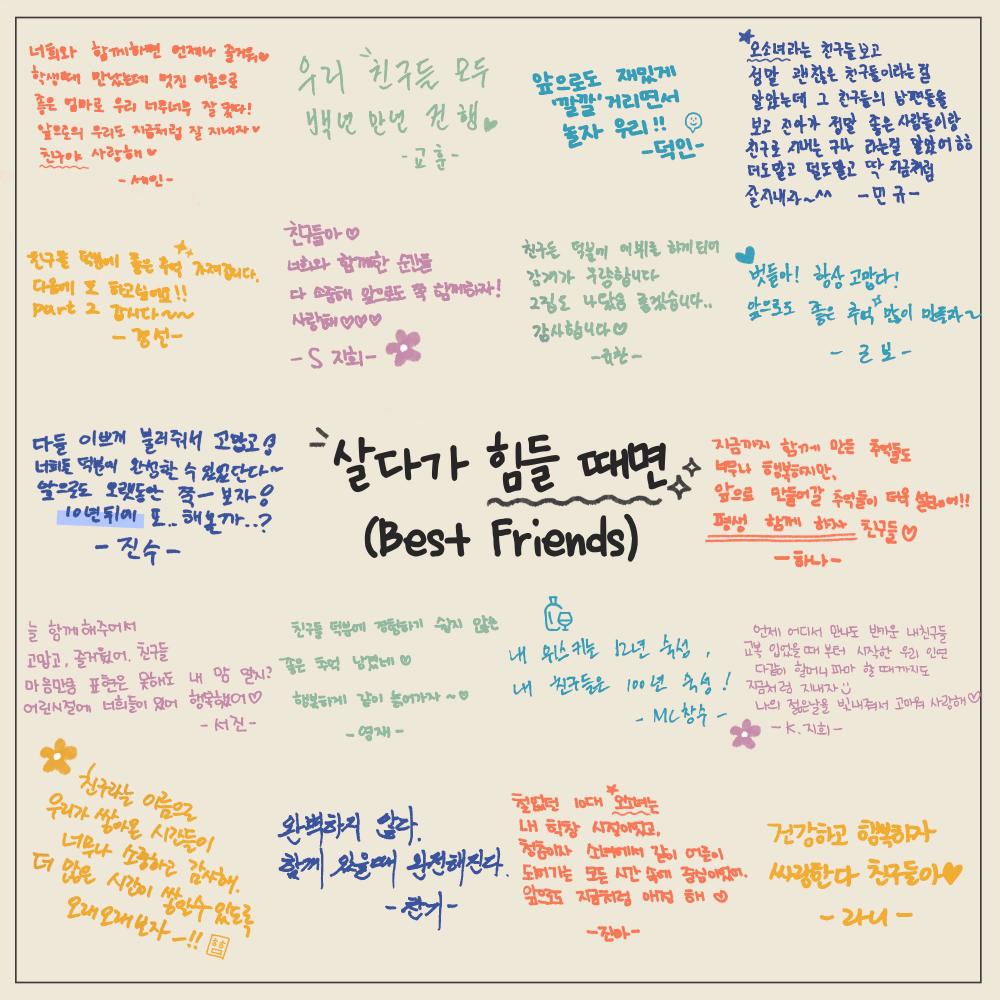 너희와 함께하면 언제나 즐거워♥
학생때 만났는데 멋진 어른으로
좋은 엄마로 우리 너무너무 잘 컸다!
앞으로의 우리도 지금처럼 잘 지내자♥
친구야 사랑해♥
-세인-
우리 친구들 모두
백년 만년 건행♥
-교훈-
앞으로도 재밌게
'깔깔' 거리면서
놀자 우리!!
-덕인-
오소녀라는 친구들보고
정말 괜찮은 친구들이라는걸
알았는데 그 친구들의 남편들을
보고 진아가 정말 좋은 사람들이랑
친구로 지내는 구나 라는걸 알았어ㅎㅎ
더도말고 덜도말고 딱 지금처럼
잘지내라~^^ -민규-
친구들 덕분에 좋은 추억 가져갑니다.
다음에 또 하고싶네요!!
part 2 갑시다~~
-경선-
친구들아♡
너희와 함께한 순간들
다 소중해 앞으로도 쭉 함께하자!
사랑해♡♡♡
-S 지희-
친구든 덕분에 이뷔를 하게되어
감개가 무량합니다
2집도 나왔음 좋겠습니다..
감사합니다♡
벗들아! 항상 고맙다!
앞으로도 좋은 추억 많이 만들자~
-근보-
다들 이쁘게 불러줘서 고맙고!
너희들 덕분에 완성할 수 있었단다~
앞으로도 오랫동안 쭉- 보자!
10년뒤에 또.. 해볼까..?
-진수-
살다가 힘들 때면
(Best Friends)
지금까지 함께 만든 추억들도
너무나 행복하지만,
앞으로 만들어갈 추억들이 더욱 설레어!!
평생 함께 하자 친구들♡
-하나-
늘 함께해주어서
고맙고, 즐거웠어. 친구들
마음만큼 표현은 못해도 내 맘 알지?
어린시절에 너희들이 있어 행복했어♡
-서진-
친구들 덕분에 경험하기 쉽지 않은
좋은 추억 남겼네♡
행복하게 같이 늙어가자~♡
-영재-
내 위스키는 12년 숙성,
내 친구들은 100년 숙성!
-MC창수-
언제 어디서 만나도 반가운 내친구들
교복 입었을 때 부터 시작한 우리 인연
다같이 할머니 파마 할 때까지도
지금처럼 지내자
나의 젊은날을 빛내줘서 고마워 사랑해♡
-K.지희-
친구라는 이름으로
우리가 쌓아온 시간들이
너무나 소중하고 감사해.
더 많은 시간이 쌓일수있도록
오래오래보자-!! 囍
완벽하지 않다.
함께 있을때 완전해진다.
-찬기-
철없던 10대 오소녀는
내 학창 시절이었고,
청춘이자 소녀에서 같이 어른이
도비기는 모든 시간 속에 중심이었어.
앞으로도 지금처럼 애정 해♡
-진아-
건강하고 행복하자
싸랑한다 친구들아♥
-라니-